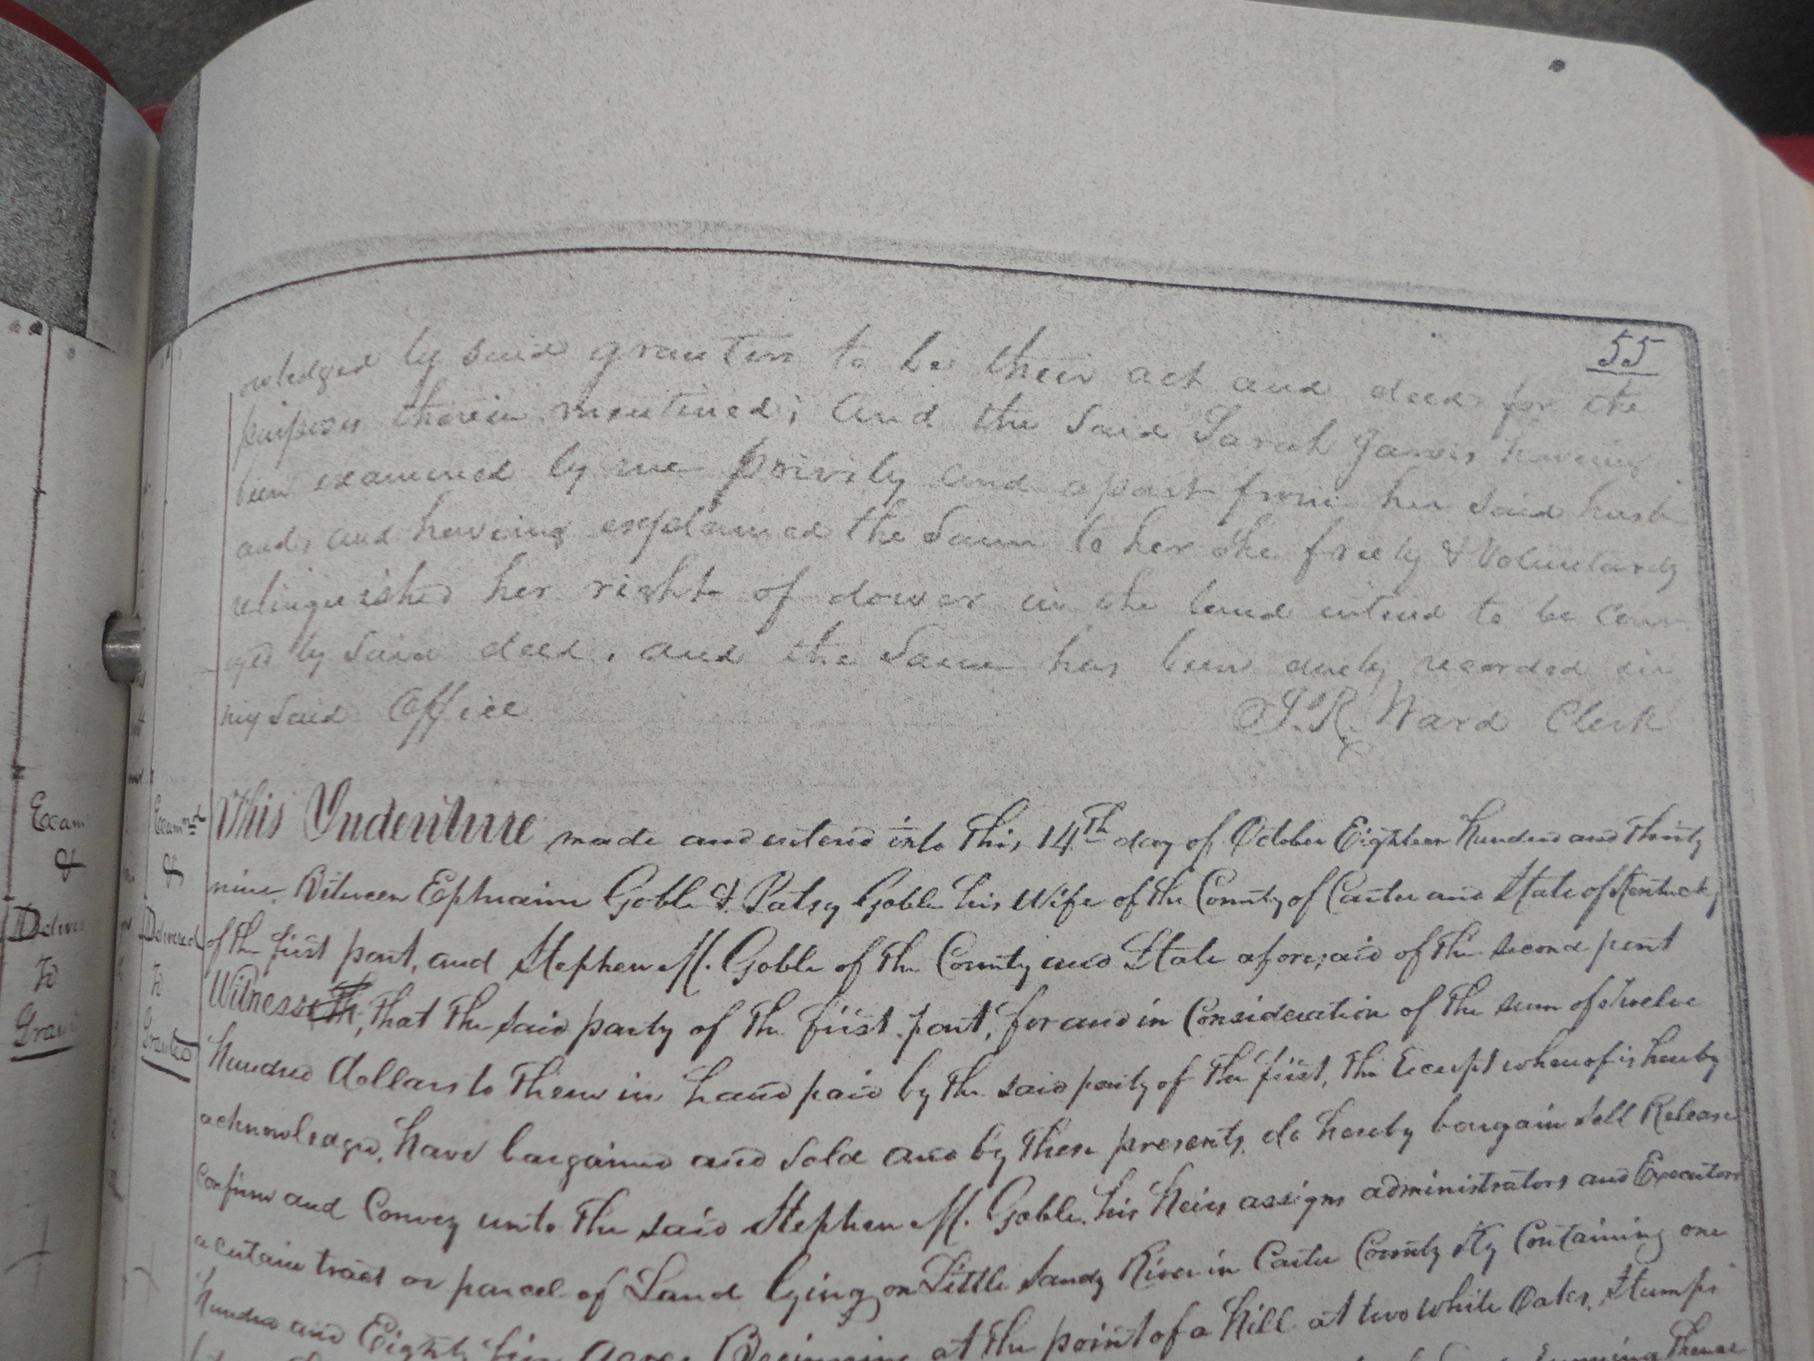 55
owledged by said grantors to be their act and deed for the
purposes therein mentined; and the said Sarah Jarvis having
been examined by me privily and apart from her said husb
and, and having explained the Same to her She freely & Voluntarily
relinquished her right of dower in the land intend to be conv
yed by said deed, and the Same has been duely recorded in
my said Office
J. R. Ward Clerk
Exam
&
Deliver
To
Gran
Exammd
&
Delivered
To
Grantee
This Indenture made and enterd into this, 14th day of October Eighteen Hundred and Thirty
nine, Between Ephraim Goble & Patsy Goble his Wife of the County of Carter and State of Kentucky
of the first part, and Stephen M. Goble of the County and State aforesaid of the second part
Witnesseth, that the said party of the first part, for and in Consideration of the sum of Twelve
hundred dollars to Them in hand paid by the said party of the first, the receipt whereof is hereby
acknowledged, have bargained and sold and by these presents, do hereby bargain sell Release
confirm and Convey unto the said Stephen M. Goble, his heirs assigns administrators and Executors
a certain tract or parcel of Land lying on Little Sandy River in Carter County Ky Containing one
hundred and Eighty five acres Beginning at the point of a hill at two white Oaks, Stumps
running Thence